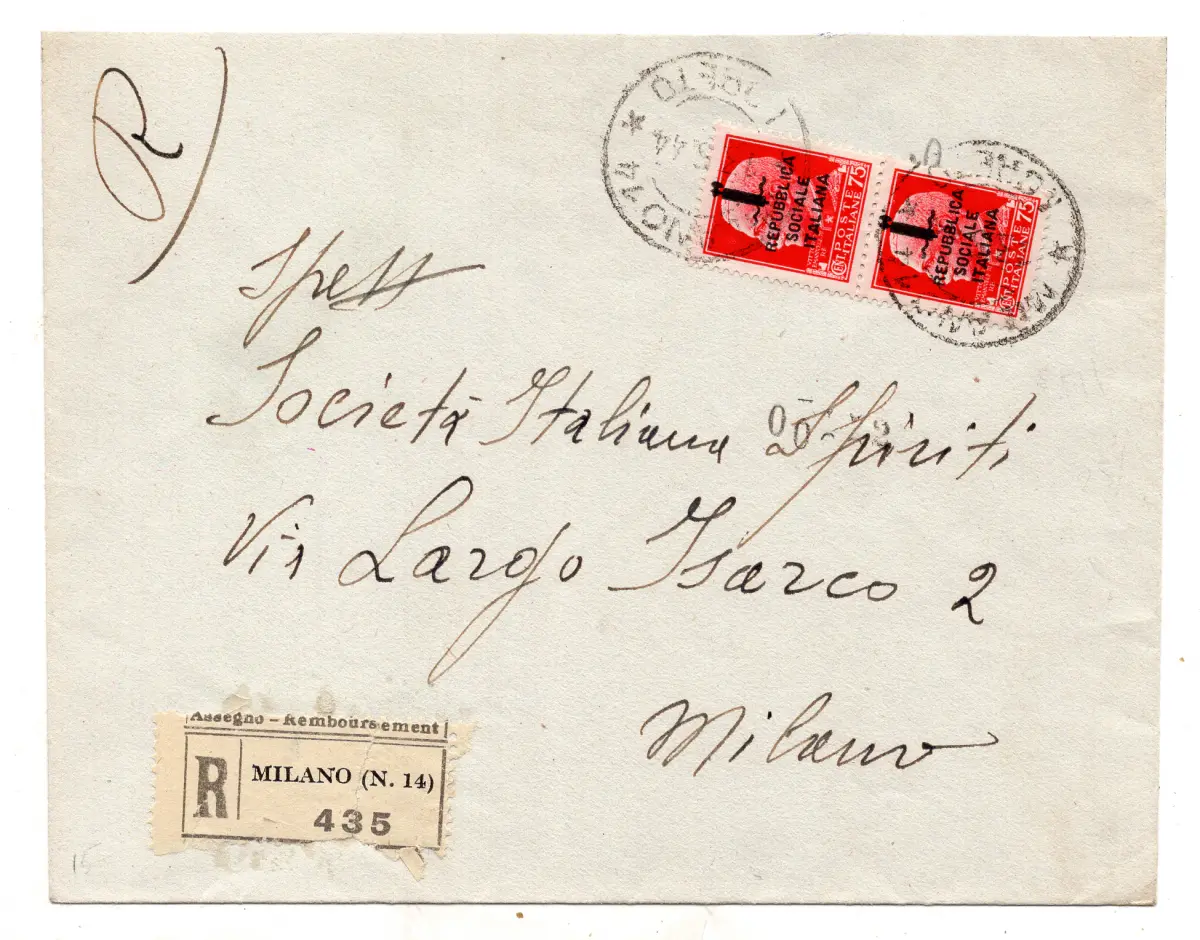 R
Spett
Società Italiana Spiriti
Via Largo Isarco 2
Milano
REPUBBLICA
SOCIALE
ITALIANA
POSTE
ITALIANE 75
REPUBBLICA
SOCIALE
ITALIANA
POSTE
ITALIANE 75
Assegno - Remboursement
R
MILANO (N. 14)
435
15